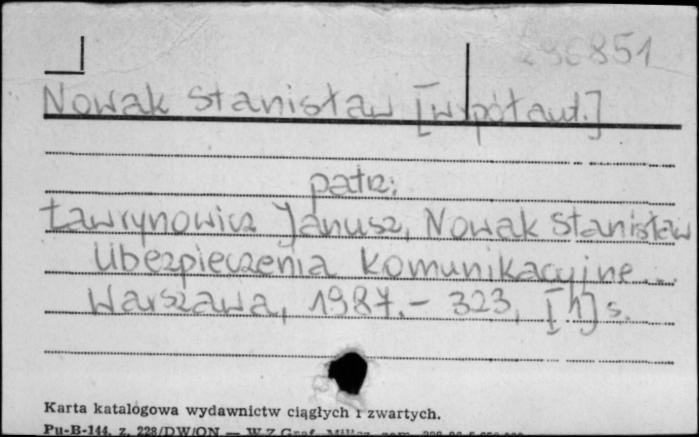 851
Nowak Stanisław [współaut.]
patrz:
Ławrynowicz Janusz, Nowak Stanisław
Ubezpieczenia komunikacyjne...
Warszawa, 1987. - 323, [1] s.
Karta katalogowa wydawnictw ciągłych i zwartych.
Pu-B-144, z. 228/DW/ON — W.Z.Graf.